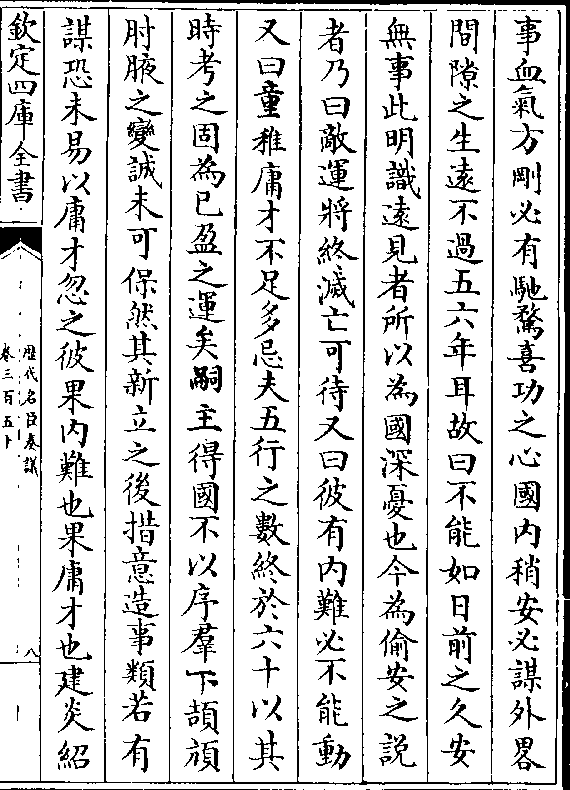 事血氣方剛必有馳騖喜功之心國内稍安必謀外畧
間隙之生遠不過五六年耳故曰不能如日前之久安
無事此明識遠見者所以為國深憂也今為偷安之說
者乃曰敵運將終滅亡可待又曰彼有内難必不能動
又曰童稚庸才不足多忌夫五行之數終於六十以其
時考之固為已盈之運矣嗣主得國不以序羣下頡頏
肘腋之變誠未可保然其新立之後措意造事類若有
謀恐未易以庸才忽之彼果内難也果庸才也建炎紹
欽定四庫全書
歴代名臣奏議
卷三百五十
八